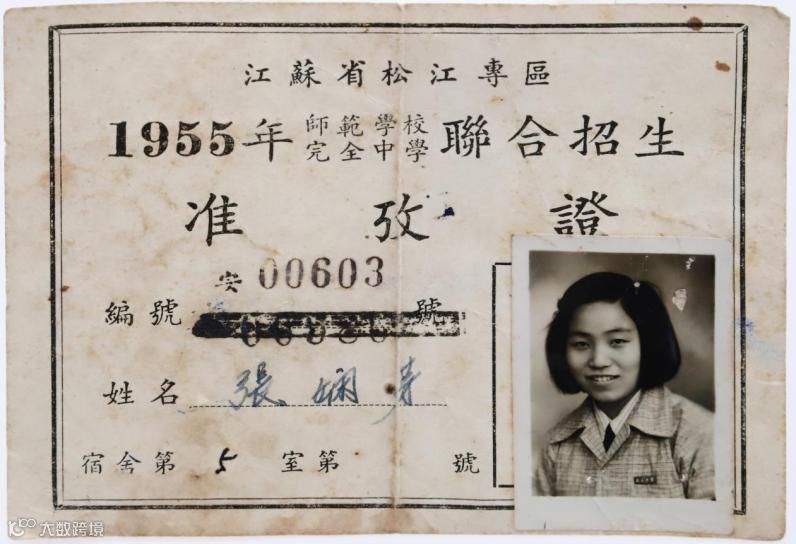 江蘇省松江專區
1955年 師範學校 完全中學 聯合招生
准攷證
安 00603
編號 號
姓名 張嫻
宿舍第 5 室第 號
大数跨境